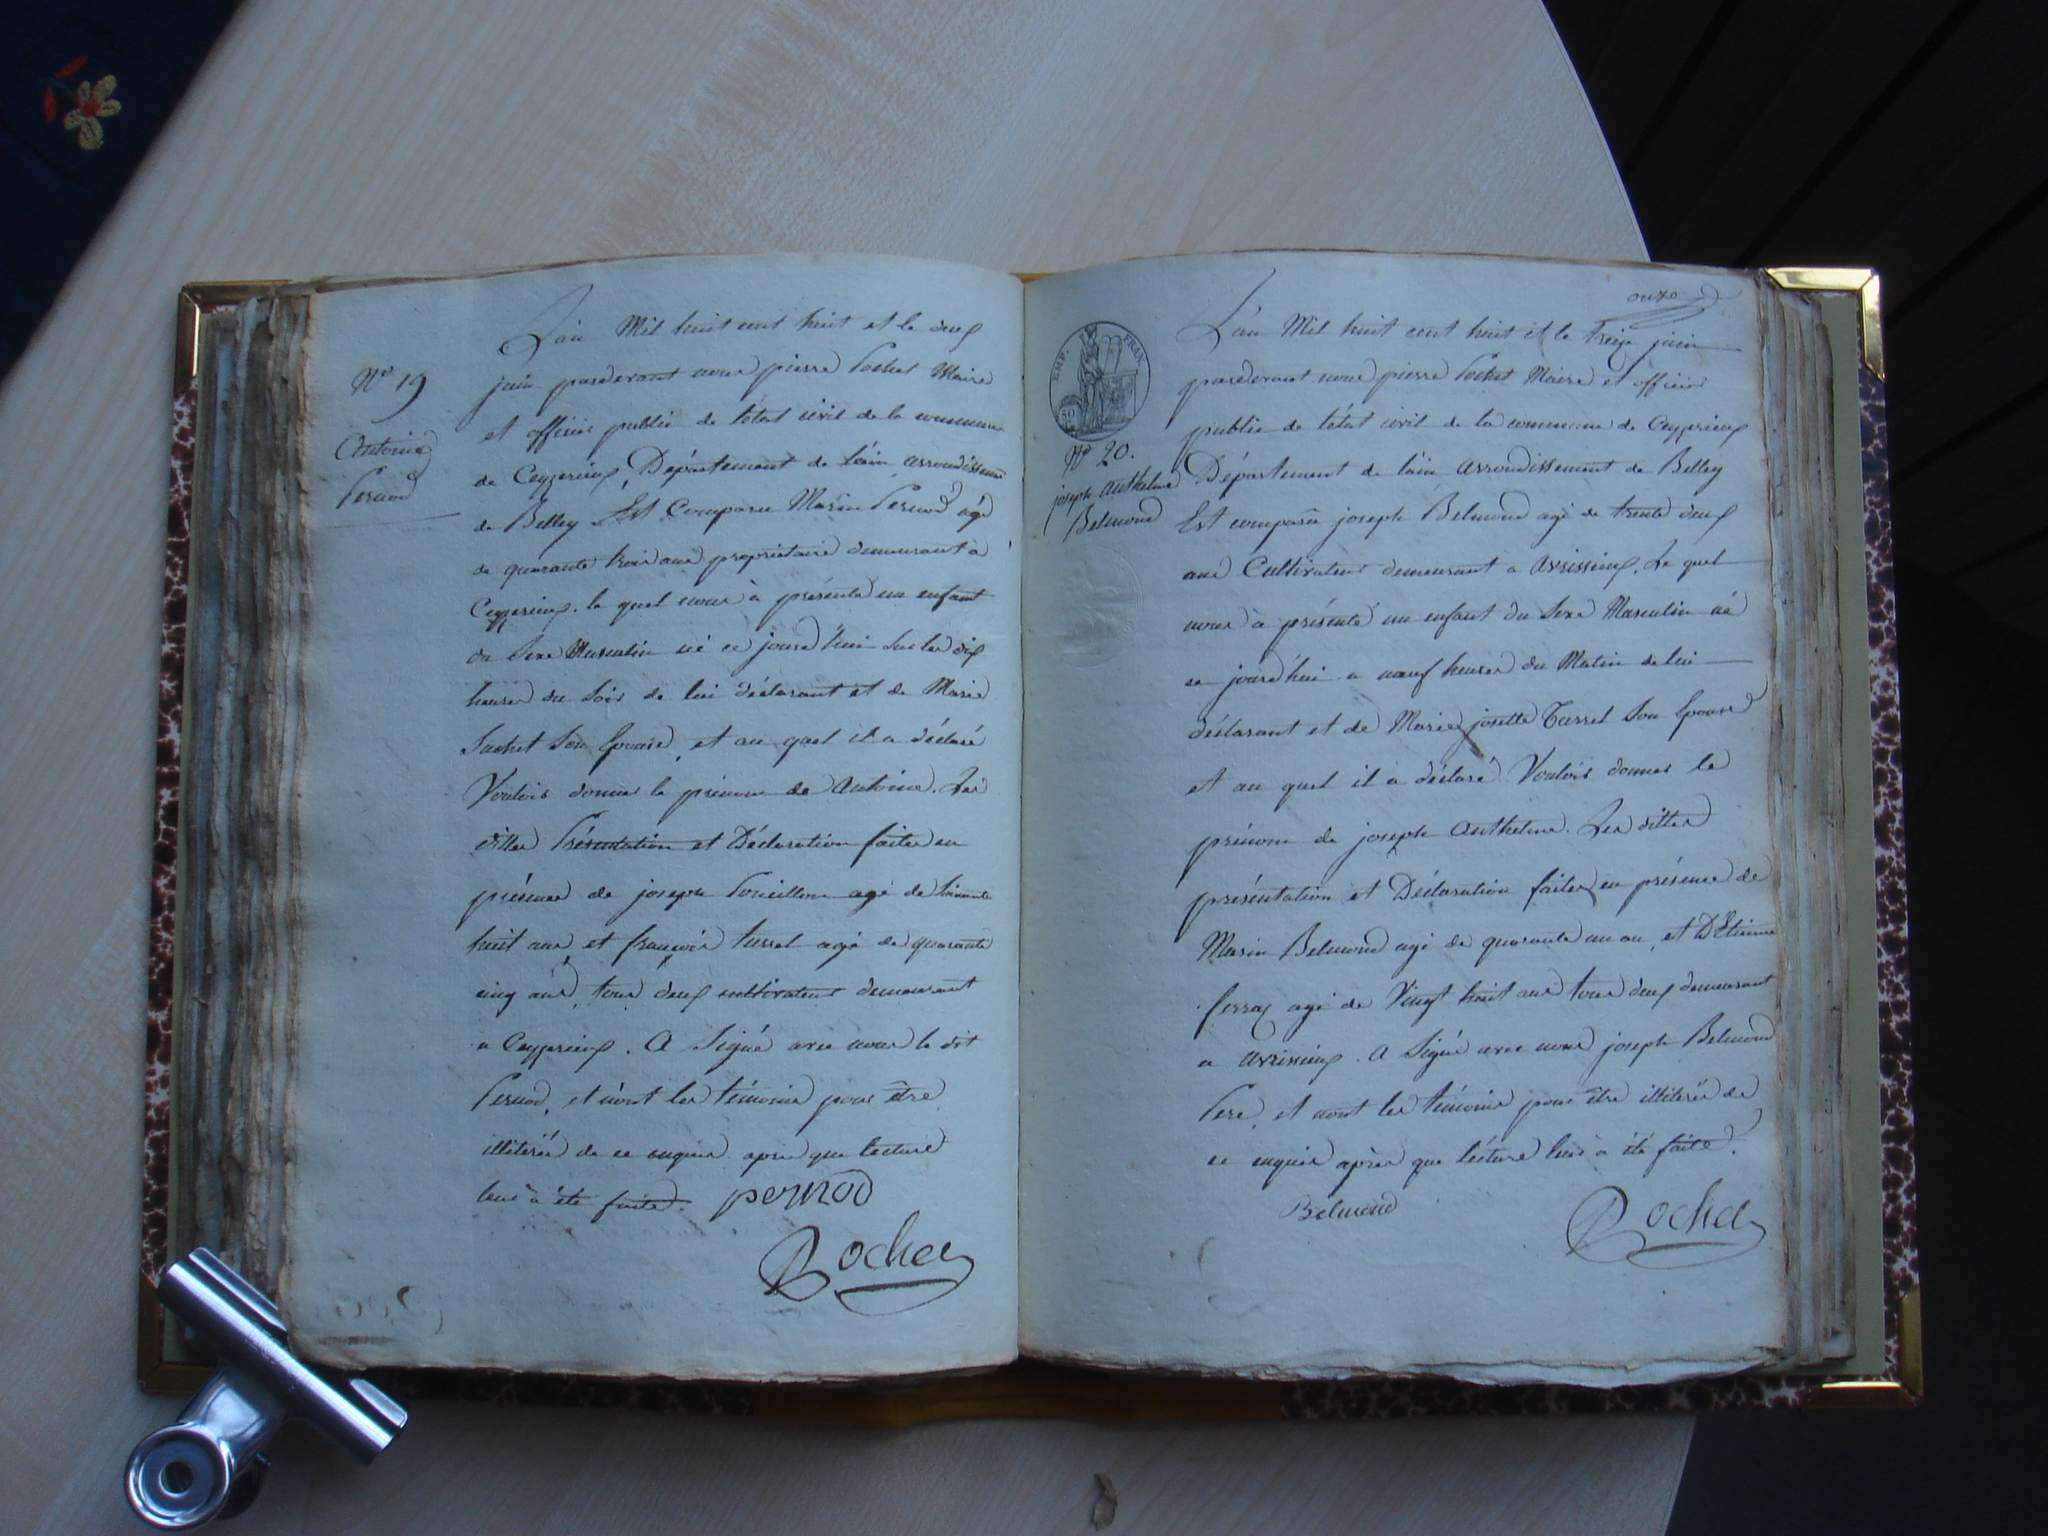 L'an Mil huit cent huit et le deux
N° 19
juin pardevant nous pierre Rochet Maire
et officier public de l'état civil de la commune
Antoine
Pernod
de Ceyzerieux, Département de l'ain arrondissement
de Belley Est Comparu Marin Pernod agé
de quarante trois ans propriétaire demeurant à
Ceyzerieux. le quel nous à présenté un enfant
du Sexe Masculin né ce jourd'hui Sur les dix
heures du Soir de lui déclarant et de Marie
Sachet Son Epouse, et au quel il a déclaré
Vouloir donner le prénom de Antoine. Les
dittes Présentation et Déclaration faites en
présence de joseph agé de Soixante
huit ans et françois turrel agé de quarante
cinq ans, tous deux cultivateurs demeurant
a Ceyzerieux. A Signé avec nous le dit
Pernod, et n'ont les témoins pour être
illitérés de ce enquis après que lecture
leur à été faite. pernod
Rochet
onze
EMP. FRAN.
50
L'an Mil huit cent huit et le treize juin
pardevant nous pierre Rochet Maire et officier
public de l'état civil de la commune de Ceyzerieux
N° 20.
joseph anthelme
Belmond
Département de l'ain arrondissement de Belley
Est comparu joseph Belmond agé de trente deux
ans Cultivateur demeurant a avrissieux. Le quel
nous à présenté un enfant du Sexe Masculin né
ce jourd'hui a neuf heures du Matin de lui
déclarant et de Marie josette Turrel Son Epouse
et au quel il à déclaré Vouloir donner le
prénom de joseph anthelme. Les dittes
présentation et Déclaration faites en présence de
Marin Belmond agé de quarante un an, et D'Etienne
ferraz agé de Vingt huit ans tous deux demeurant
a avrissieux. A Signé avec nous joseph Belmond
Pere, et nont les témoins pour être illitérés de
ce enquis après que lécture leur à été faite.
Belmond
Rochet